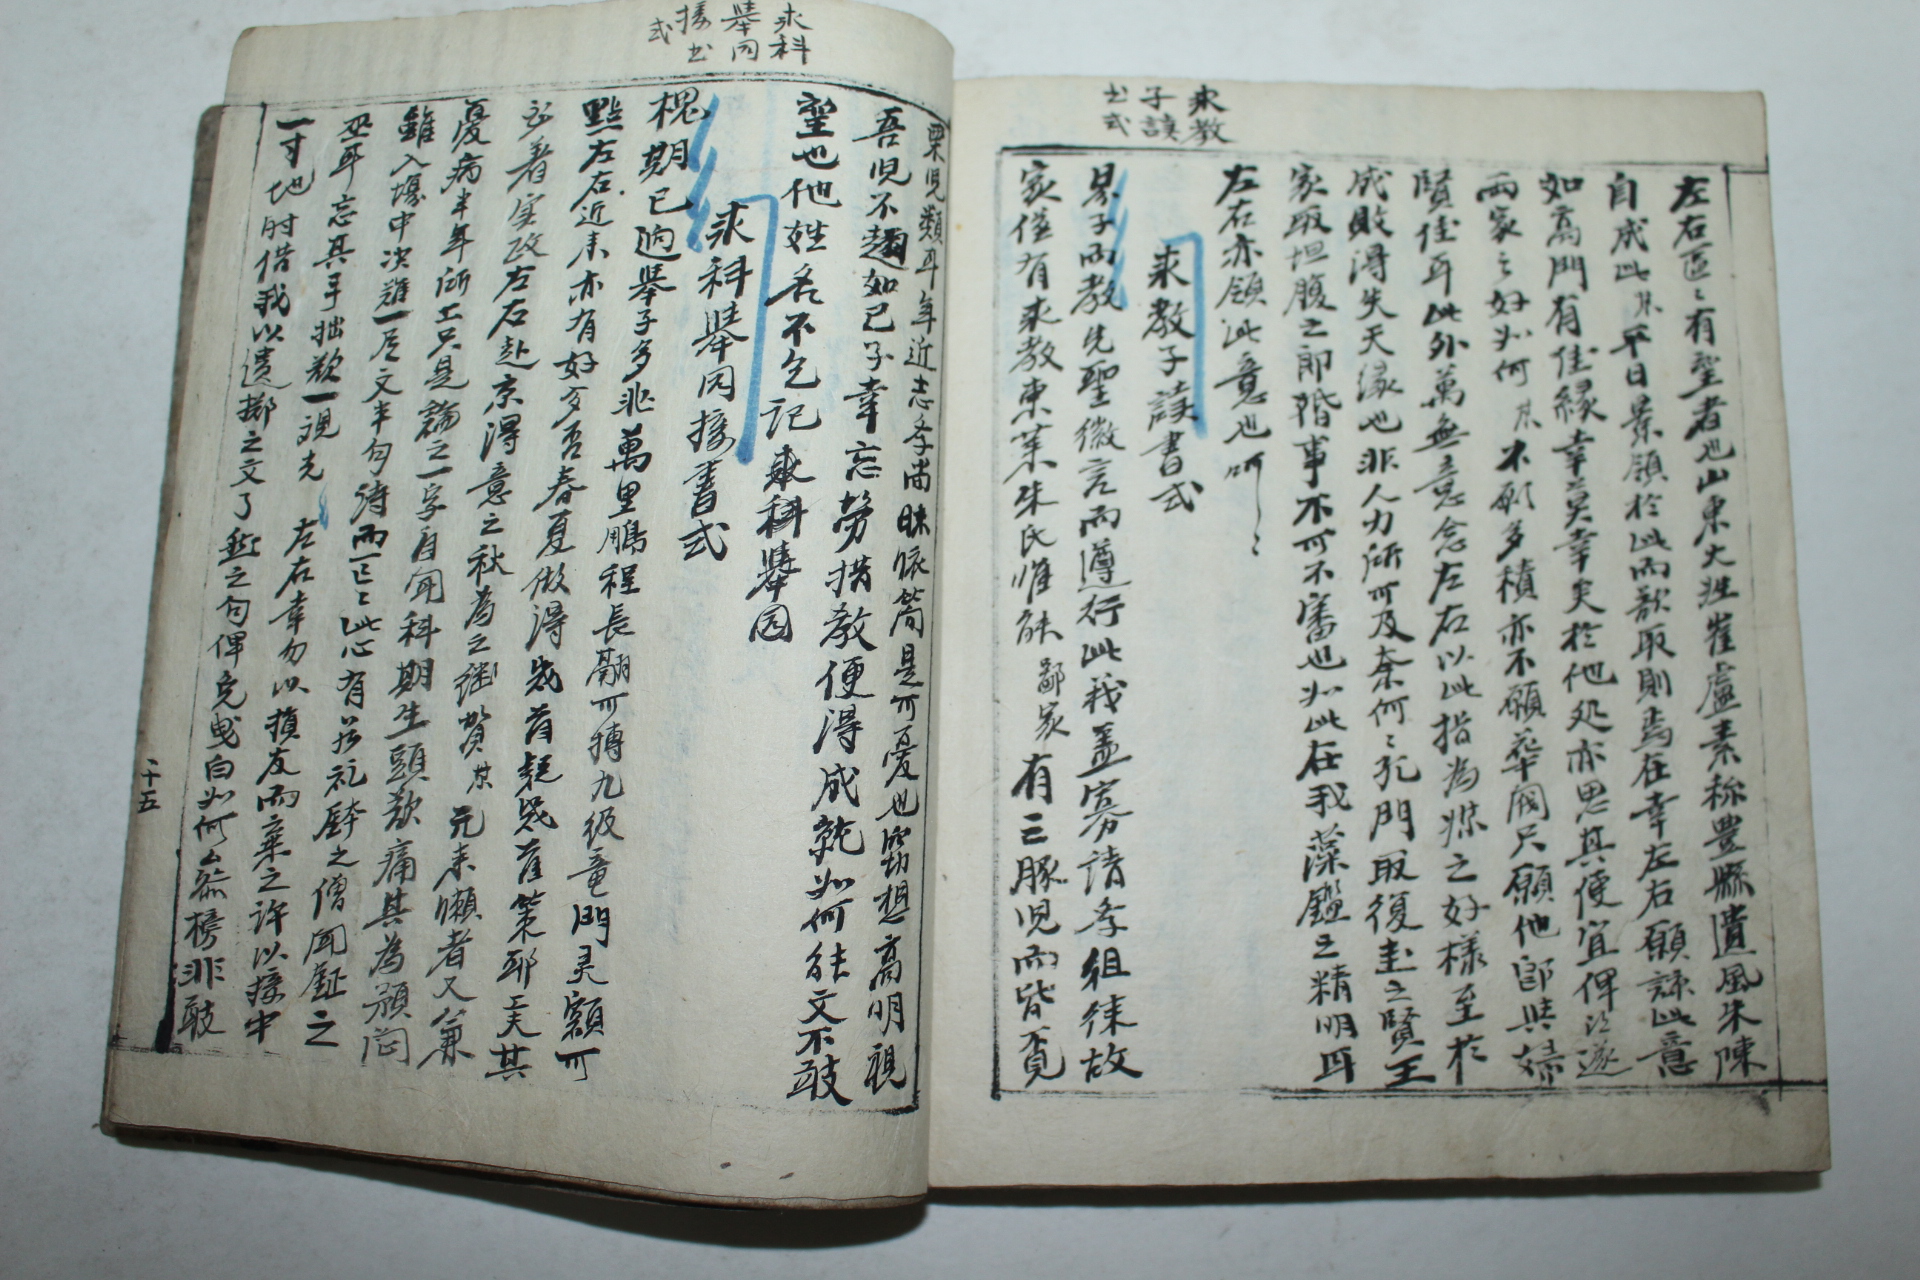 求教
子讀
書式
左右區〻有望者也山東大姓崔盧素称豊縣遺風朱陳
自成此 某 平日景領於此而欲取則焉在幸左右願諒此意
如高門有佳緣幸莫幸矣於他処亦思其便宜俾 遂
兩家之好如何 某 不願多積亦不願華閥只願他郎與婦
賢佳耳此外萬無意念左右以此指為媒之好樣至於
成敗得失天緣也非人力所可及奈何〻孔門取復圭之賢王
家取坦腹之郎婚事不可不審也如此在我藻鑑之精明耳
左右亦領此意也
求教子讀書式
易子而教先聖微言而遵行此我盖寡請李組徠故
家僅有求教東萊朱氏惟能 鄙家 有三豚児而皆不覓
求科
擧同
接書
式
栗児類耳年近志李尚昧 簡是可憂也窃想高明視
吾児不趐如己子幸忘勞措教便得成就如何能文不敢
望也他姓名不乞記
求科擧同
求科擧同接書式
槐期已迫擧子多非萬里鵬程長翮可搏九級竜門 額可
點左右近来亦有好 否春夏做得 首疑 首策耶工夫其
著实政左右赴京得意之秋為之 賀 某 元来懶者又兼
憂病半年所工只是論之一字自聞科期生頭欲痛其為 悶
雖入場中决難一 文半句待而已〻此心有若礼 之僧聞鉦之
巫耳忘其手拙欲一觀光 左右幸勿以損友而棄之許以接中
一寸地时借我以遺擲之文了 之句俾免曳白如何 榜非敢
十五